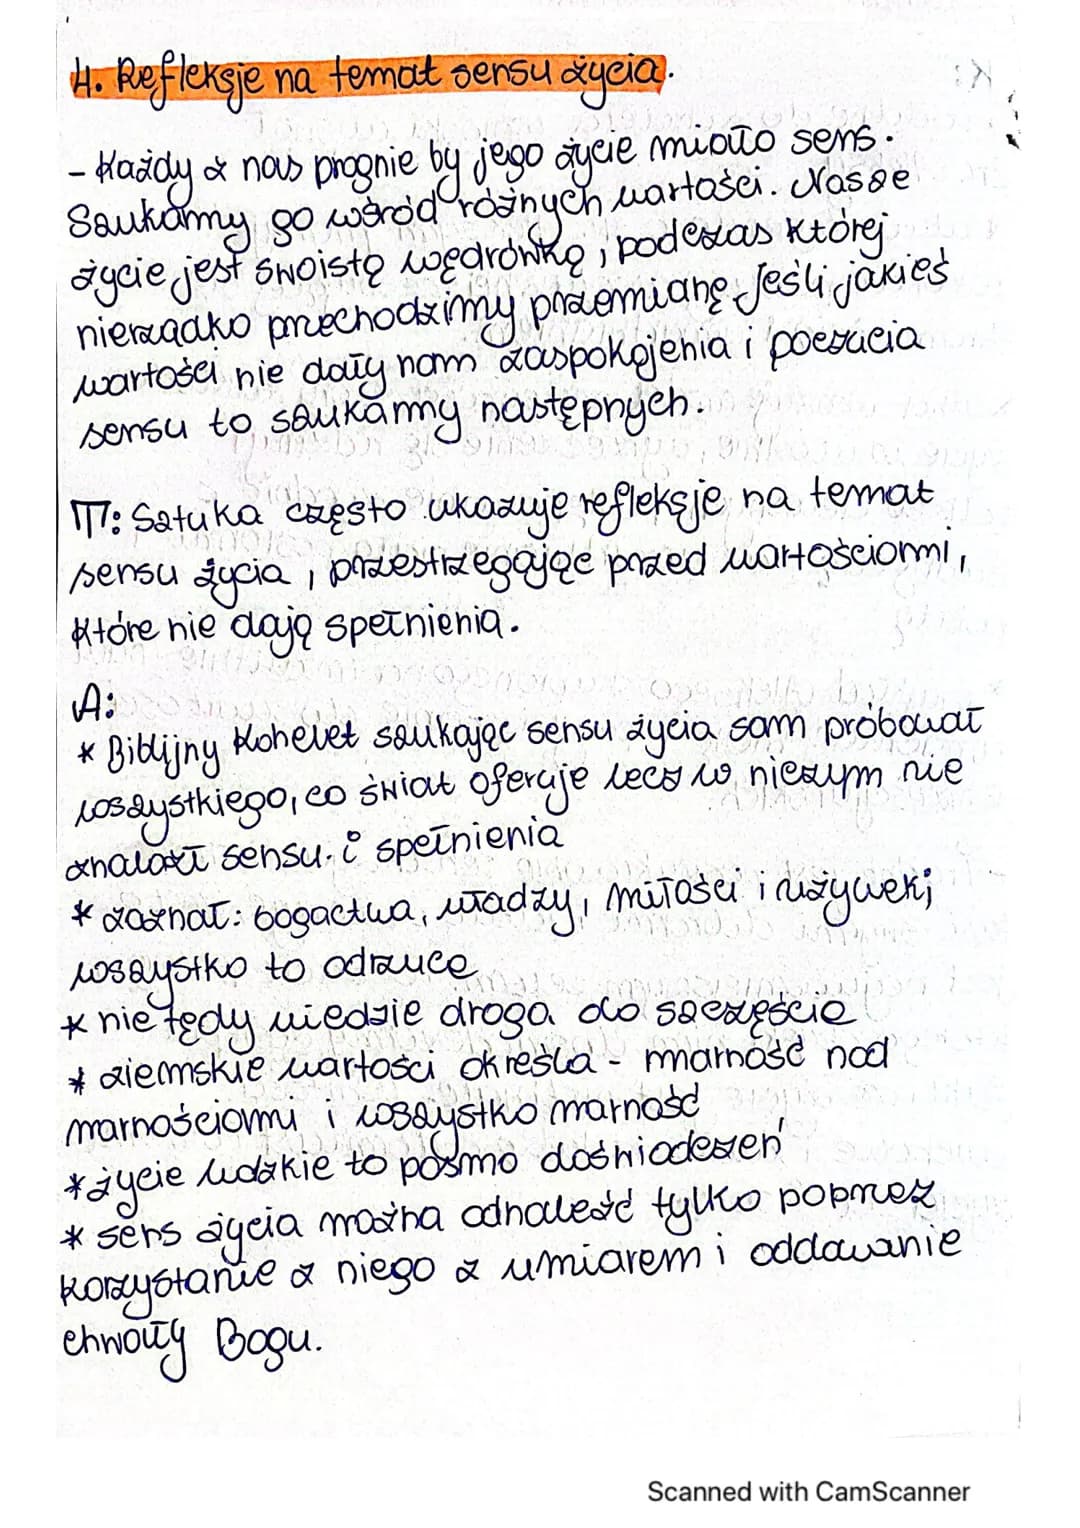 4. Refleksje na temat sensu życia.
- Każdy z nas pragnie by jego życie miało sens.
Szukamy go wśród różnych wartości. Nasze
życie jest swoistą wędrówką, podczas której
nierzadko przechodzimy przemianę. Jeśli jakieś
wartości nie dały nam zaspokojenia i poczucia
sensu to szukamy następnych.
T: Sztuka często ukazuje refleksje na temat
sensu życia, przestrzegając przed wartościami,
które nie dają spełnienia.
A:
* Biblijny Kohelet szukając sensu życia sam próbował
wszystkiego, co świat oferuje lecz w niczym nie
znalazł sensu i spełnienia
* zaznał: bogactwa, władzy, miłości i używek;
wszystko to odrzuca
* nie tędy wiedzie droga do szczęścia
* ziemskie wartości określa - marność nad
marnościami i wszystko marność
* życie ludzkie to pasmo doświadczeń
* sens życia można odnaleźć tylko poprzez
korzystanie z niego z umiarem i oddawanie
chwały Bogu.
Scanned with CamScanner